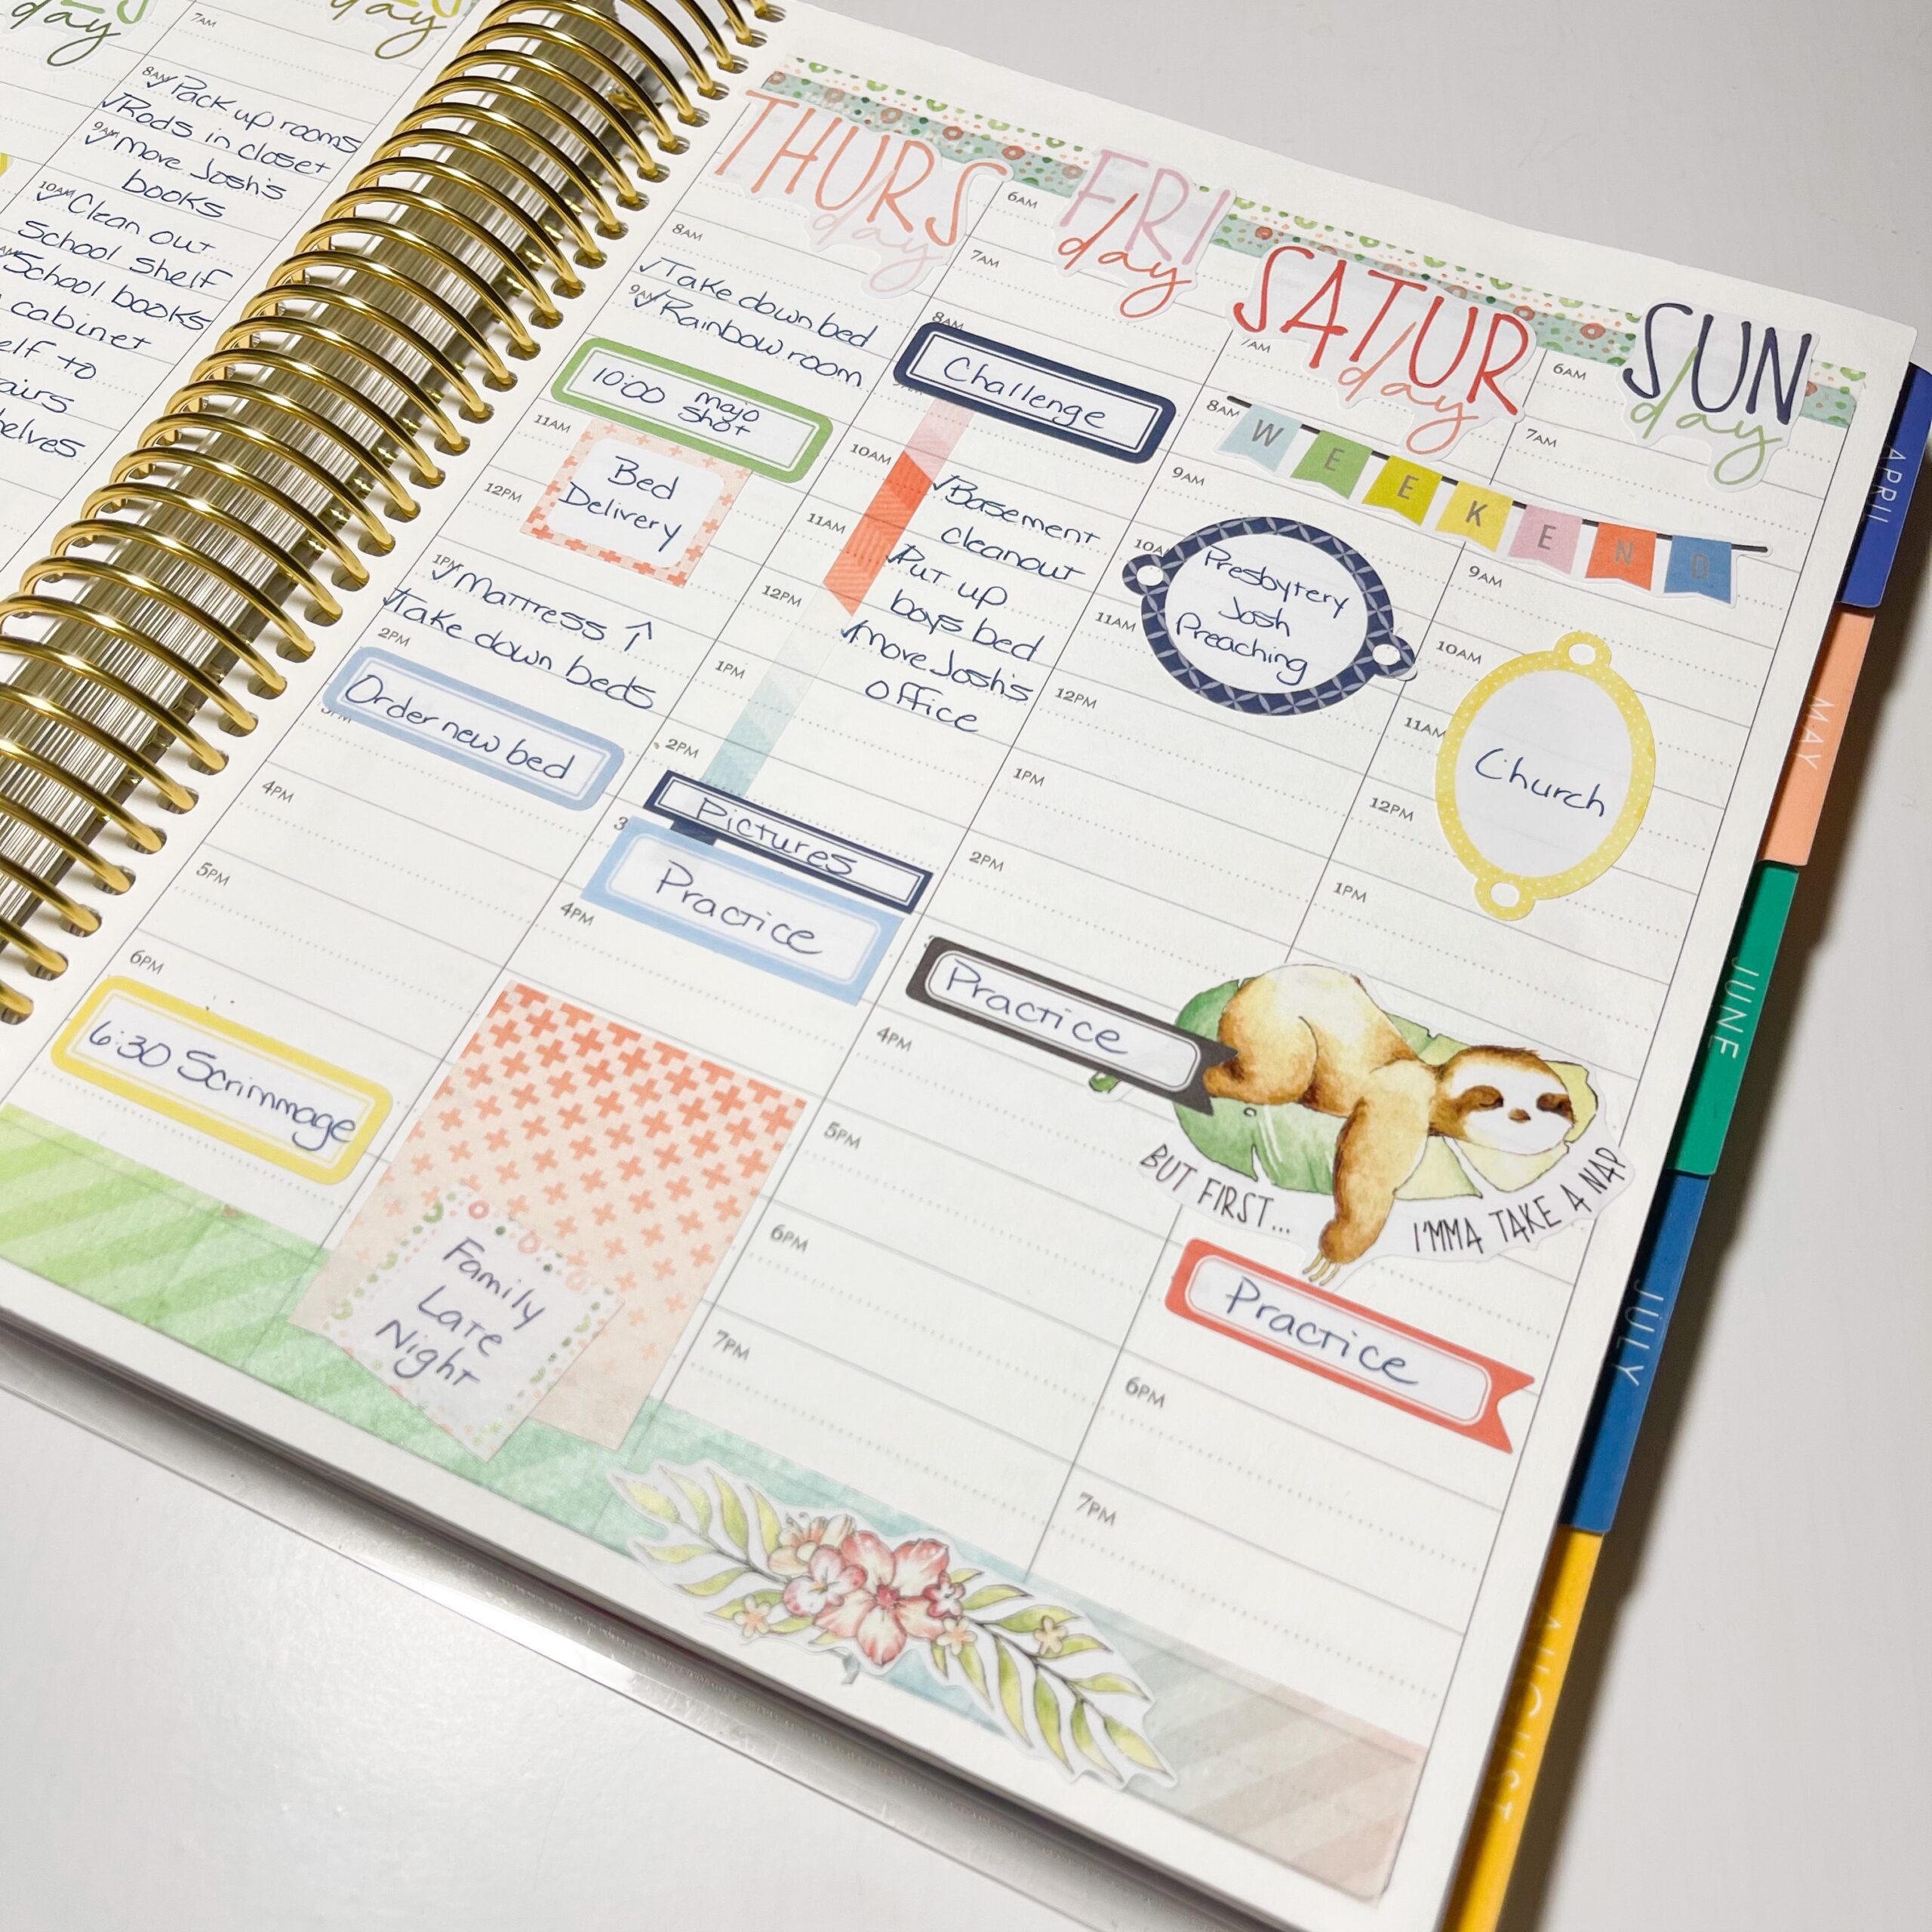 day
7AM
day
8AM
✓Pack up rooms
✓Rods in closet
9AM
✓Move Josh's
books
10AM
✓Clean out
School Shelf
✓School books
cabinet
to
THURS
day
8AM
✓Take down bed
9AM
✓Rainbow room
10:00 mojo
shot
11AM
Bed
Delivery
12PM
1PM
✓Mattress ↑
✓Take down beds
2PM
Order new bed
3PM
4PM
5PM
6PM
6:30 Scrimmage
FRI
day
6AM
7AM
8AM
Challenge
10AM
✓Basement
cleanout
11AM
✓Put up
boys bed
12PM
✓Move Josh's
office
1PM
2PM
Pictures
3
Practice
4PM
Family
Late
Night
SATUR
day
7AM
8AM
WEEKEND
9AM
10AM
Presbytery
Josh
Preaching
11AM
12PM
1PM
2PM
Practice
4PM
5PM
6PM
7PM
SUN
day
6AM
7AM
9AM
10AM
11AM
Church
12PM
1PM
BUT FIRST...
I'MMA TAKE A NAP
Practice
6PM
7PM
APRIL
MAY
JUNE
JULY
AUGUST